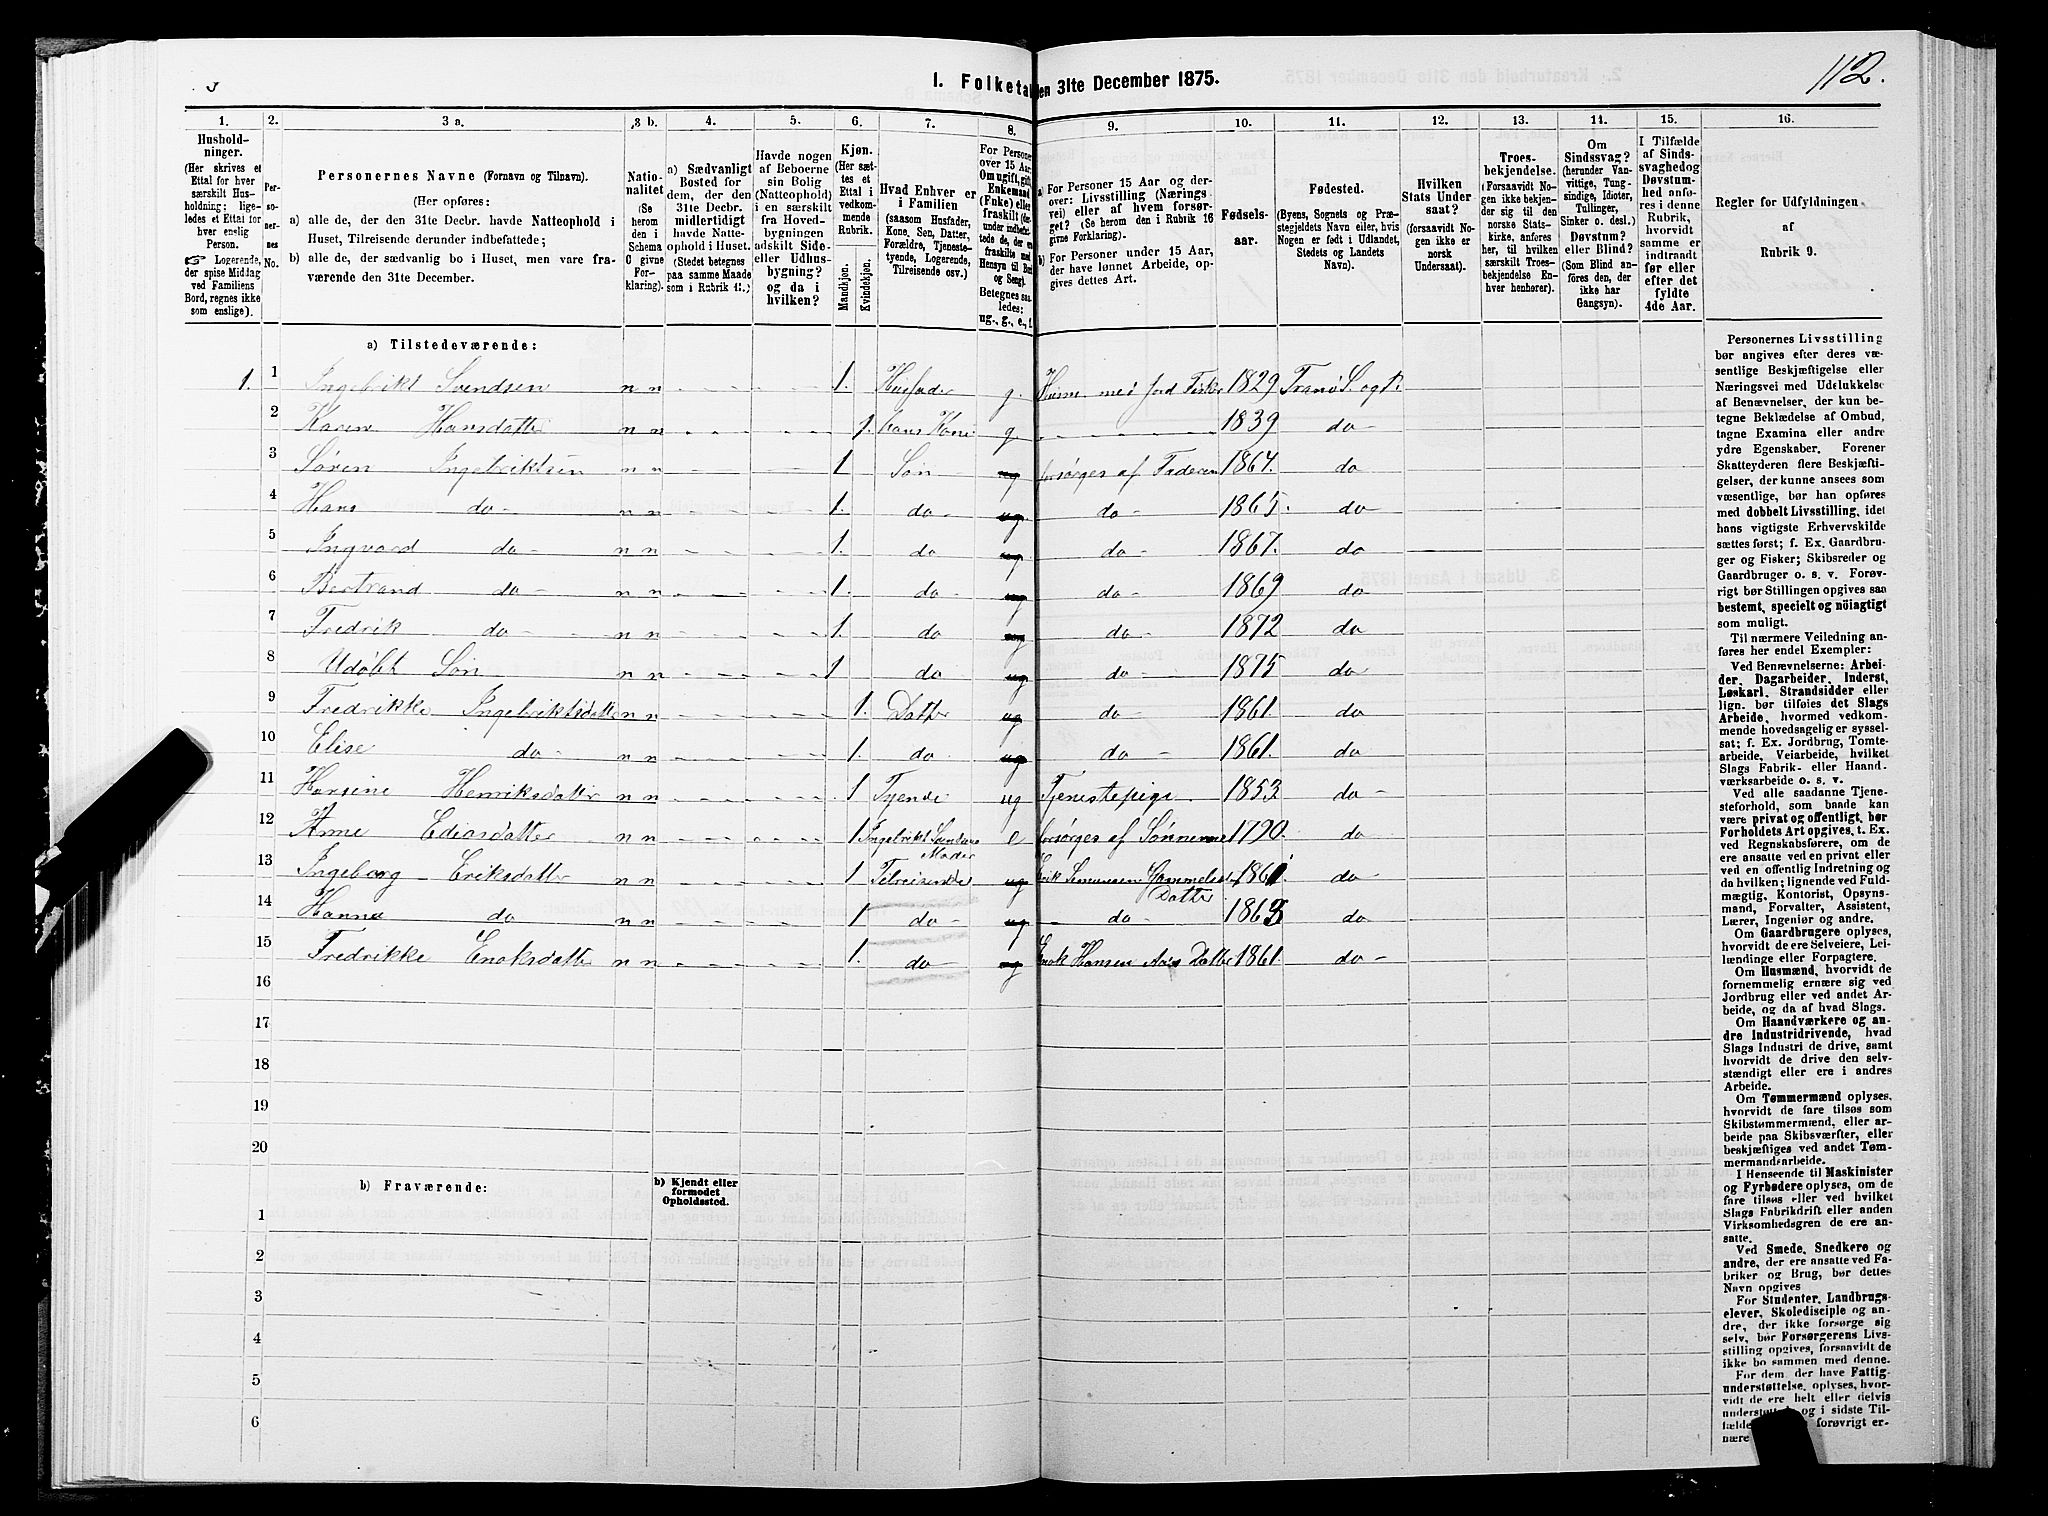 112.
1. Folketal den 31te December 1875.
1. 2. 3 a. 3 b. 4. 5. 6. 7. 8. 9. 10. 11. 12. 13. 14. 15. 16.
Husholdninger.
(Her skrives et Ettal for hver særskilt Husholdning; ligeledes et Ettal for hver enslig Person.
☞ Logerende, der spise Middag ved Familiens Bord, regnes ikke som enslige).
Personernes No.
Personernes Navne (Fornavn og Tilnavn).
(Her opføres:
a) alle de, der den 31te Decbr. havde Natteophold i Huset, Tilreisende derunder indbefattede;
b) alle de, der sædvanlig bo i Huset, men vare fraværende den 31te December.
Nationalitet (Se herom den i Schema C givne Forklaring).
a) Sædvanligt Bosted for dem, der den 31te Decbr. midlertidigt havde Natteophold i Huset. (Stedet betegnes paa samme Maade som i Rubrik 11.)
Havde nogen af Beboerne sin Bolig (Natteophold) i en særskilt fra Hovedbygningen adskilt Side- eller Udhusbygning? og da i hvilken?
Kjøn. (Her sættes et Ettal i vedkommende Rubrik.)
Mandkjøn. Kvindekjøn.
Hvad Enhver er i Familien (saasom Husfader, Kone, Søn, Datter, Forældre, Tjenestetyende, Logerende, Tilreisende osv.)
For Personer over 15 Aar: Om ugift, gift, Enkemand (Enke) eller fraskilt
Betegnes saaledes: ug., g., e., f.
a) For Personer 15 Aar og derover: Livsstilling (Næringsvei) eller af hvem forsørget? (Se herom den i Rubrik 16 givne Forklaring).
b) For Personer under 15 Aar, der have lønnet Arbeide, opgives dettes Art.
Fødselsaar.
Fødested.
(Byens, Sognets og Præstegjeldets Navn eller, hvis Nogen er født i Udlandet, Stedets og Landets Navn).
Hvilken Stats Undersaat? (forsaavidt Nogen ikke er norsk Undersaat).
Troesbekjendelse. (Forsaavidt Nogen ikke bekjender sig til den norske Statskirke, anføres her, til hvilken særskilt Troesbekjendelse Enhver henhører).
Om Sindssvag? (herunder Vanvittige, Tungsindige, Idioter, Tullinger, Sinker o. desl.) Døvstum? eller Blind? (Som Blind anføres den, der ikke har Gangsyn).
I Tilfælde af Sindssvaghed og Døvstumhed anføres i denne Rubrik, hvorvidt samme er indtraadt før eller efter det fyldte 4de Aar.
Regler for Udfyldningen af Rubrik 9.
a) Tilstedeværende:
1. 1 Ingebrikt Svendsen n n 1. Husfader g. Husm med Jord Fisker 1829 Tranø S. og P.
2 Karen Hansdatter n n 1. hans Kone g. 1839 do
3 Søren Ingebriktsen n n 1 Søn ug forsørges af Faderen 1864. do
4 Hans do n n 1. do ug do 1865. do
5 Ingvard do n n 1. do ug do 1867. do
6 Bertrand do n n 1. do ug do 1869 do
7 Fredrik do n n 1. do ug do 1872 do
8 Udøbt Søn n n 1 do ug do 1875 do
9 Fredrikke Ingebriktsdatter n n 1. Datter ug do 1861. do
10 Elise do n n 1. do ug do 1861. do
11 Hansine Henriksdatter n n 1 Tyende ug Tjenestepige 1853 do
12 Anne Ediasdatter n n 1 Ingebrikt Svendsens Moder e forsørges af Sønnen 1790. do
13 Ingeborg Eriksdatter n n 1 Tilreisende ug Erik Datter 1861. do
14 Hanna do n n 1 do ug do 1863 do
15 Fredrikke Enoksdatter n n 1. do ug Enok Hansen Datter 1861. do
16
17
18
19
20
b) Fraværende:
b) Kjendt eller formodet Opholdssted.
1
2
3
4
5
6
Personernes Livsstilling bør angives efter deres væsentlige Beskjæftigelse eller Næringsvei med Udelukkelse af Benævnelser, der kun betegne Beklædelse af Ombud, tagne Examina eller andre ydre Egenskaber. Forener Skatteyderen flere Beskjæftigelser, der kunne ansees som væsentlige, bør han opføres med dobbelt Livsstilling, idet hans vigtigste Erhvervskilde sættes først; f. Ex. Gaardbruger og Fisker; Skibsreder og Gaardbruger o. s. v. Forøvrigt bør Stillingen opgives saa bestemt, specielt og nöiagtigt som muligt.
Til nærmere Veiledning anføres her endel Exempler:
Ved Benævnelserne: Arbeider, Dagarbeider, Inderst, Løskarl, Strandsidder eller lign. bør tilføies det Slags Arbeide, hvormed vedkommende hovedsagelig er sysselsat; f. Ex. Jordbrug, Tomtearbeide, Veiarbeide, hvilket Slags Fabrik- eller Haandværksarbeide o. s. v.
Ved alle saadanne Tjenesteforhold, som baade kan være privat og offentligt, bør Forholdets Art opgives. t. Ex. ved Regnskabsførere, om de ere ansatte ved en privat eller ved en offentlig Indretning og da hvilken; lignende ved Fuldmægtig, Kontorist, Opsynsmand, Forvalter, Assistent, Lærer, Ingeniør og andre.
Om Gaardbrugere oplyses, hvorvidt de ere Selveiere, Leilændinge eller Forpagtere.
Om Husmænd, hvorvidt de fornemmelig ernære sig ved Jordbrug eller ved andet Arbeide, og da af hvad Slags.
Om Haandværkere og andre Industridrivende, hvad Slags Industri de drive, samt hvorvidt de drive den selvstændigt eller ere i andres Arbeide.
Om Tømmermænd oplyses, hvorvidt de fare tilsøs som Skibstømmermænd, eller arbeide paa Skibsværfter, eller beskjæftiges ved andet Tømmermandsarbeide.
I Henseende til Maskinister og Fyrbødere oplyses, om de fare tilsøs eller ved hvilket Slags Fabrikdrift eller anden Virksomhedsgren de ere ansatte.
Ved Smede, Snedkere og andre, der ere ansatte ved Fabriker og Brug, bør dettes Navn opgives
For Studenter, Landbrugselever, Skoledisciple og andre, der ikke forsørge sig selv, bør Forsørgerens Livsstilling opgives, forsaavidt de ikke bo sammen med denne.
For dem, der have Fattigunderstøttelse, oplyses, hvorvidt de ere helt eller delvis